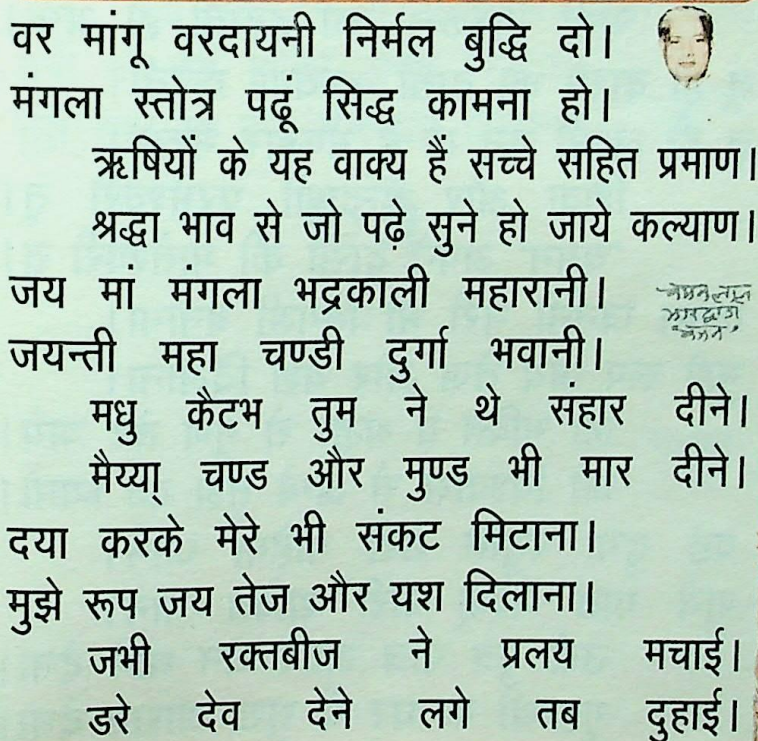 वर मांगू वरदायनी निर्मल बुद्धि दो।
मंगला स्तोत्र पढ़ूं सिद्ध कामना हो।
ऋषियों के यह वाक्य हैं सच्चे सहित प्रमाण।
श्रद्धा भाव से जो पढ़े सुने हो जाये कल्याण।
जय मां मंगला भद्रकाली महारानी।
जयन्ती महा चण्डी दुर्गा भवानी।
मधु कैटभ तुम ने थे संहार दीने।
मैय्या् चण्ड और मुण्ड भी मार दीने।
दया करके मेरे भी संकट मिटाना।
मुझे रूप जय तेज और यश दिलाना।
जभी रक्तबीज ने प्रलय मचाई।
डरे देव देने लगे तब दुहाई।